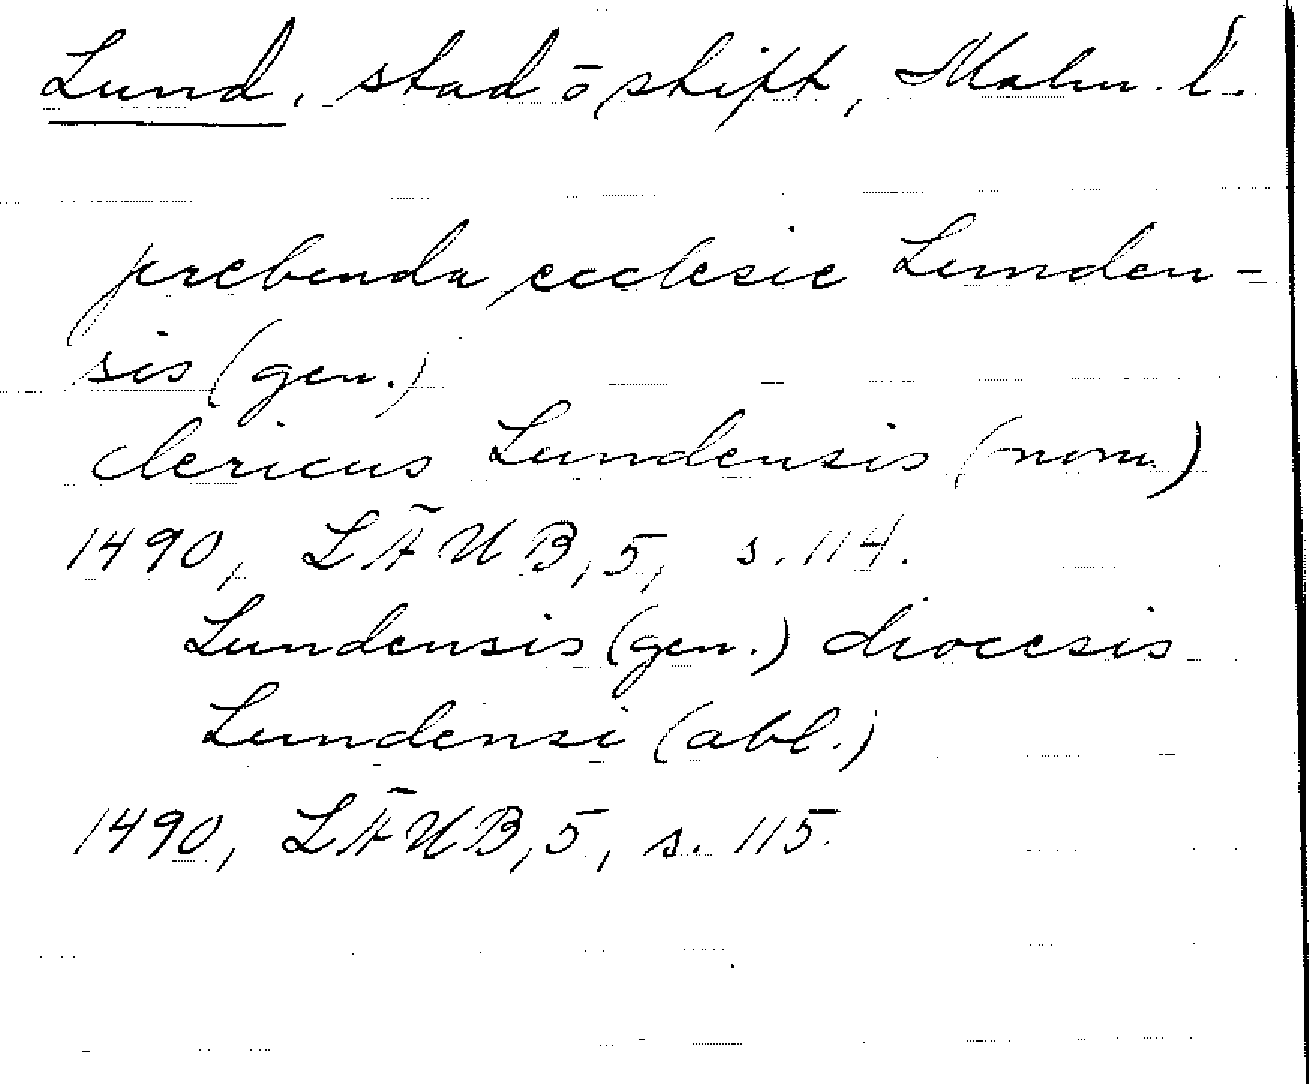 Lund, stad o skift, Malm. l.
prebenda ecclesie Lunden-
sis (gen.)
clericus Lundensis (nom.)
1490, LÄUB, 5, s. 114.
Lundensis (gen.) diocesis
Lundensi (abl.)
1490, LÄUB, 5, s. 115.